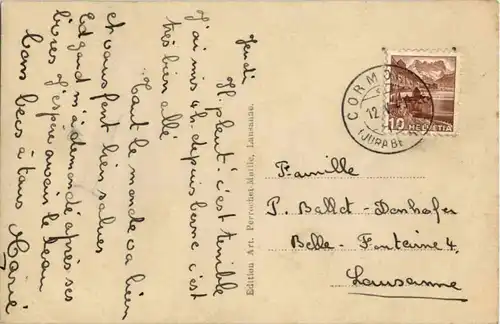 Jeudi
Il pleut c'est terrible
J'ai mis 4h. depuis berne c'est
très bien allé
Tout le monde va bien
et vous fent bien salues
Edgard m'a demandé après ses
livres j'espère avoir le beau
bons becs à tous Marie
Edition Art. Perrochet-Matile, Lausanne.
CORMO
12.
(JURABE
10 HELVETIA
Famille
P. Ballet-Denhofer
Belle-Fontaine 4.
Lausanne